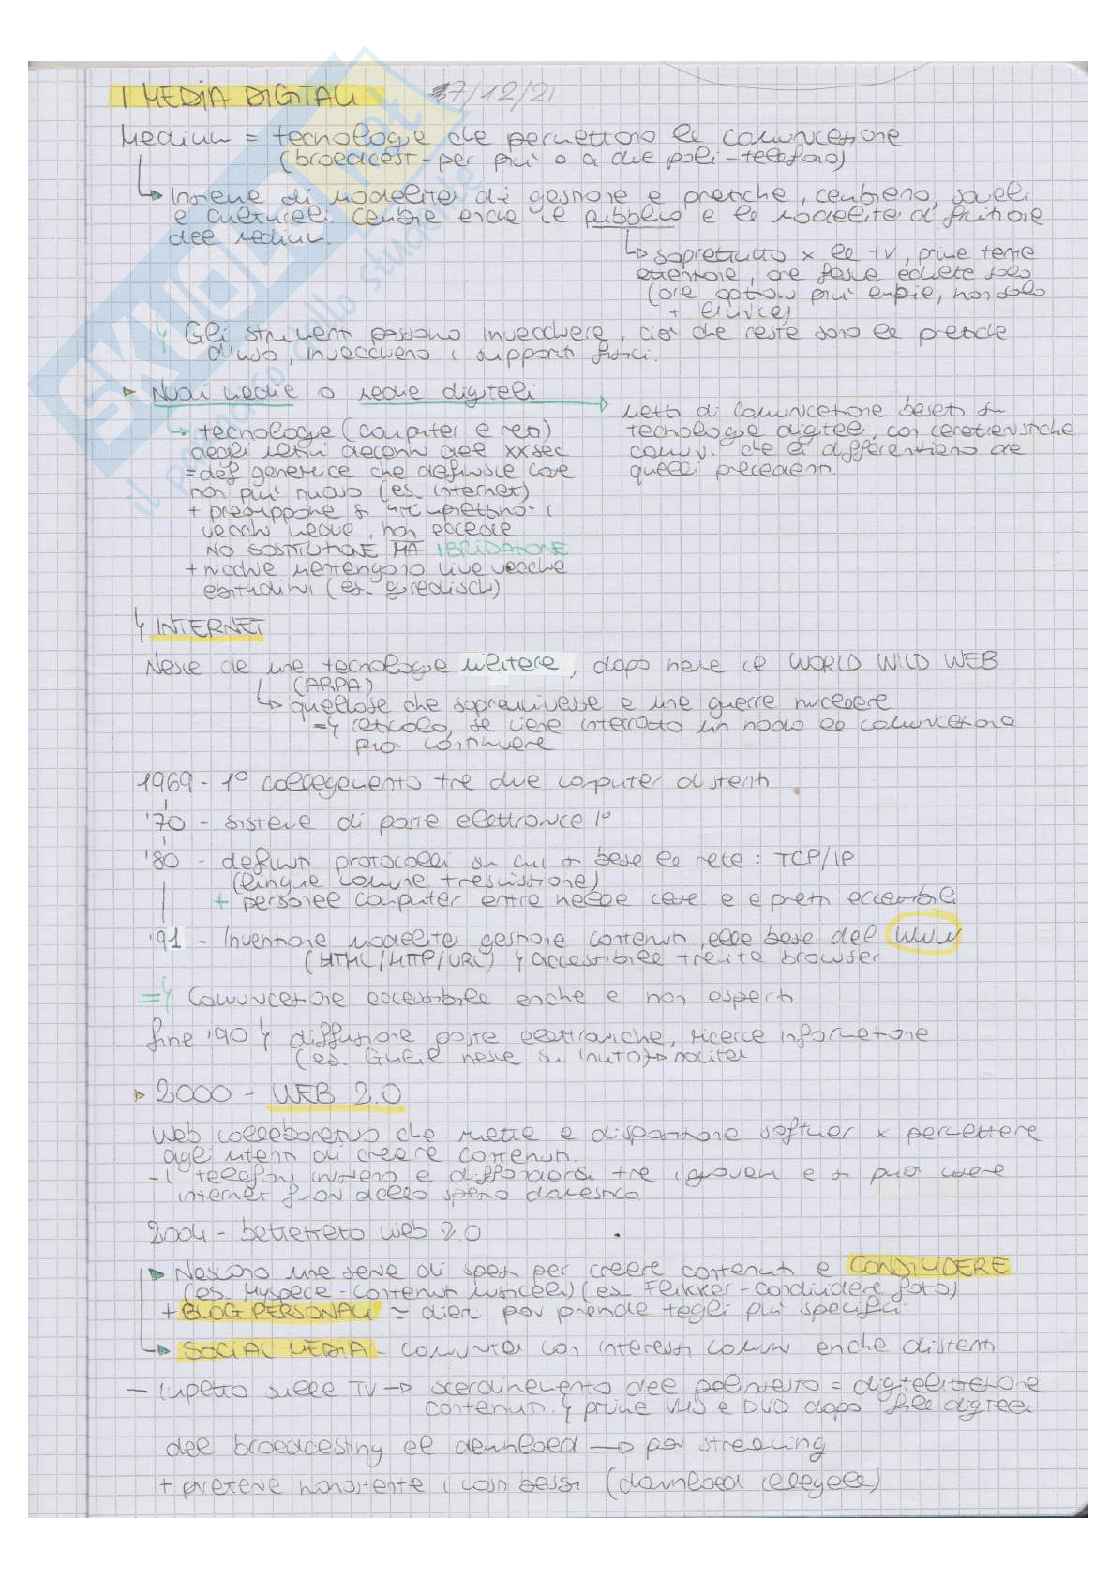 I MEDIA DIGITALI 17/12/21
Medium = tecnologie che permettono la comunicazione
(broadcast - per più o a due poli - telefono)
↳ Insieme di modalità di gestione e pratiche, cambiano, sociali
e culturali. Cambia anche il pubblico e la modalità di fruizione
del medium.
↳ soprattutto x la tv, prima tanta
attenzione, ora fascia adulta solo
(ora option più ampie, non solo
Gli strumenti possono invecchiare, ciò che resta sono le pratiche
d'uso, invecchiano i supporti fisici.
Nuovi media o media digitali
Metti di comunicazione basati su
tecnologie digitali, con caratteristiche
comuni che li differenziano da
quelli precedenti
↳ tecnologie (computer e reti)
degli ultimi decenni del XX sec
= def generica che definisce cose
non più nuove (es. internet)
+ presuppone si interrompano i
vecchi media, non accade
NO SOSTITUZIONE MA IBRIDAZIONE
+ nuove mantengono vive vecchie
abitudini (es. giradischi)
↳ INTERNET
Nasce da una tecnologia militare, dopo nasce il WORLD WILD WEB
(ARPA)
↳ qualcosa che sopravvivesse a una guerra nucleare
reticolo, se viene interrotto un nodo la comunicazione
può continuare
1969 - 1° collegamento tra due computer distanti
'70 - sistema di posta elettronica 1°
'80 - definiti protocolli su cui si basa la rete: TCP/IP
(lingua comune trasmissione)
+ personal computer entra nelle case e a prezzi accessibili
'91 - Invenzione modalità gestione contenuti, alla base del WWW
(HTML/HTTP/URL) accessibile tramite browser
=> Comunicazione accessibile anche a non esperti
fine '90 diffusione posta elettroniche, ricerca informazione
(es. GMail nasce su invito) → novità
2000 - WEB 2.0
Web collaborativo che mette a disposizione softuer x permettere
agli utenti di creare contenuti.
- I telefoni iniziano a diffondersi tra i giovani e si può usare
internet fuori dallo spazio domestico
2004 - battezzato web 2.0
Nascono una serie di spazi per creare contenuti e CONDIVIDERE
(es. Myspace - contenuti musicali) (es. Flikker - condividere foto)
+ BLOG PERSONALI = diari poi prende tagli più specifici
SOCIAL MEDIA - comunità con interessi comuni anche distanti
- Impatto sulla TV → scardinamento del palinsesto = digitalizzazione
contenuti. prima VHS e DVD dopo file digitali
dal broadcasting al download → poi streaming
+ nonostante i costi bassi (download illegale)